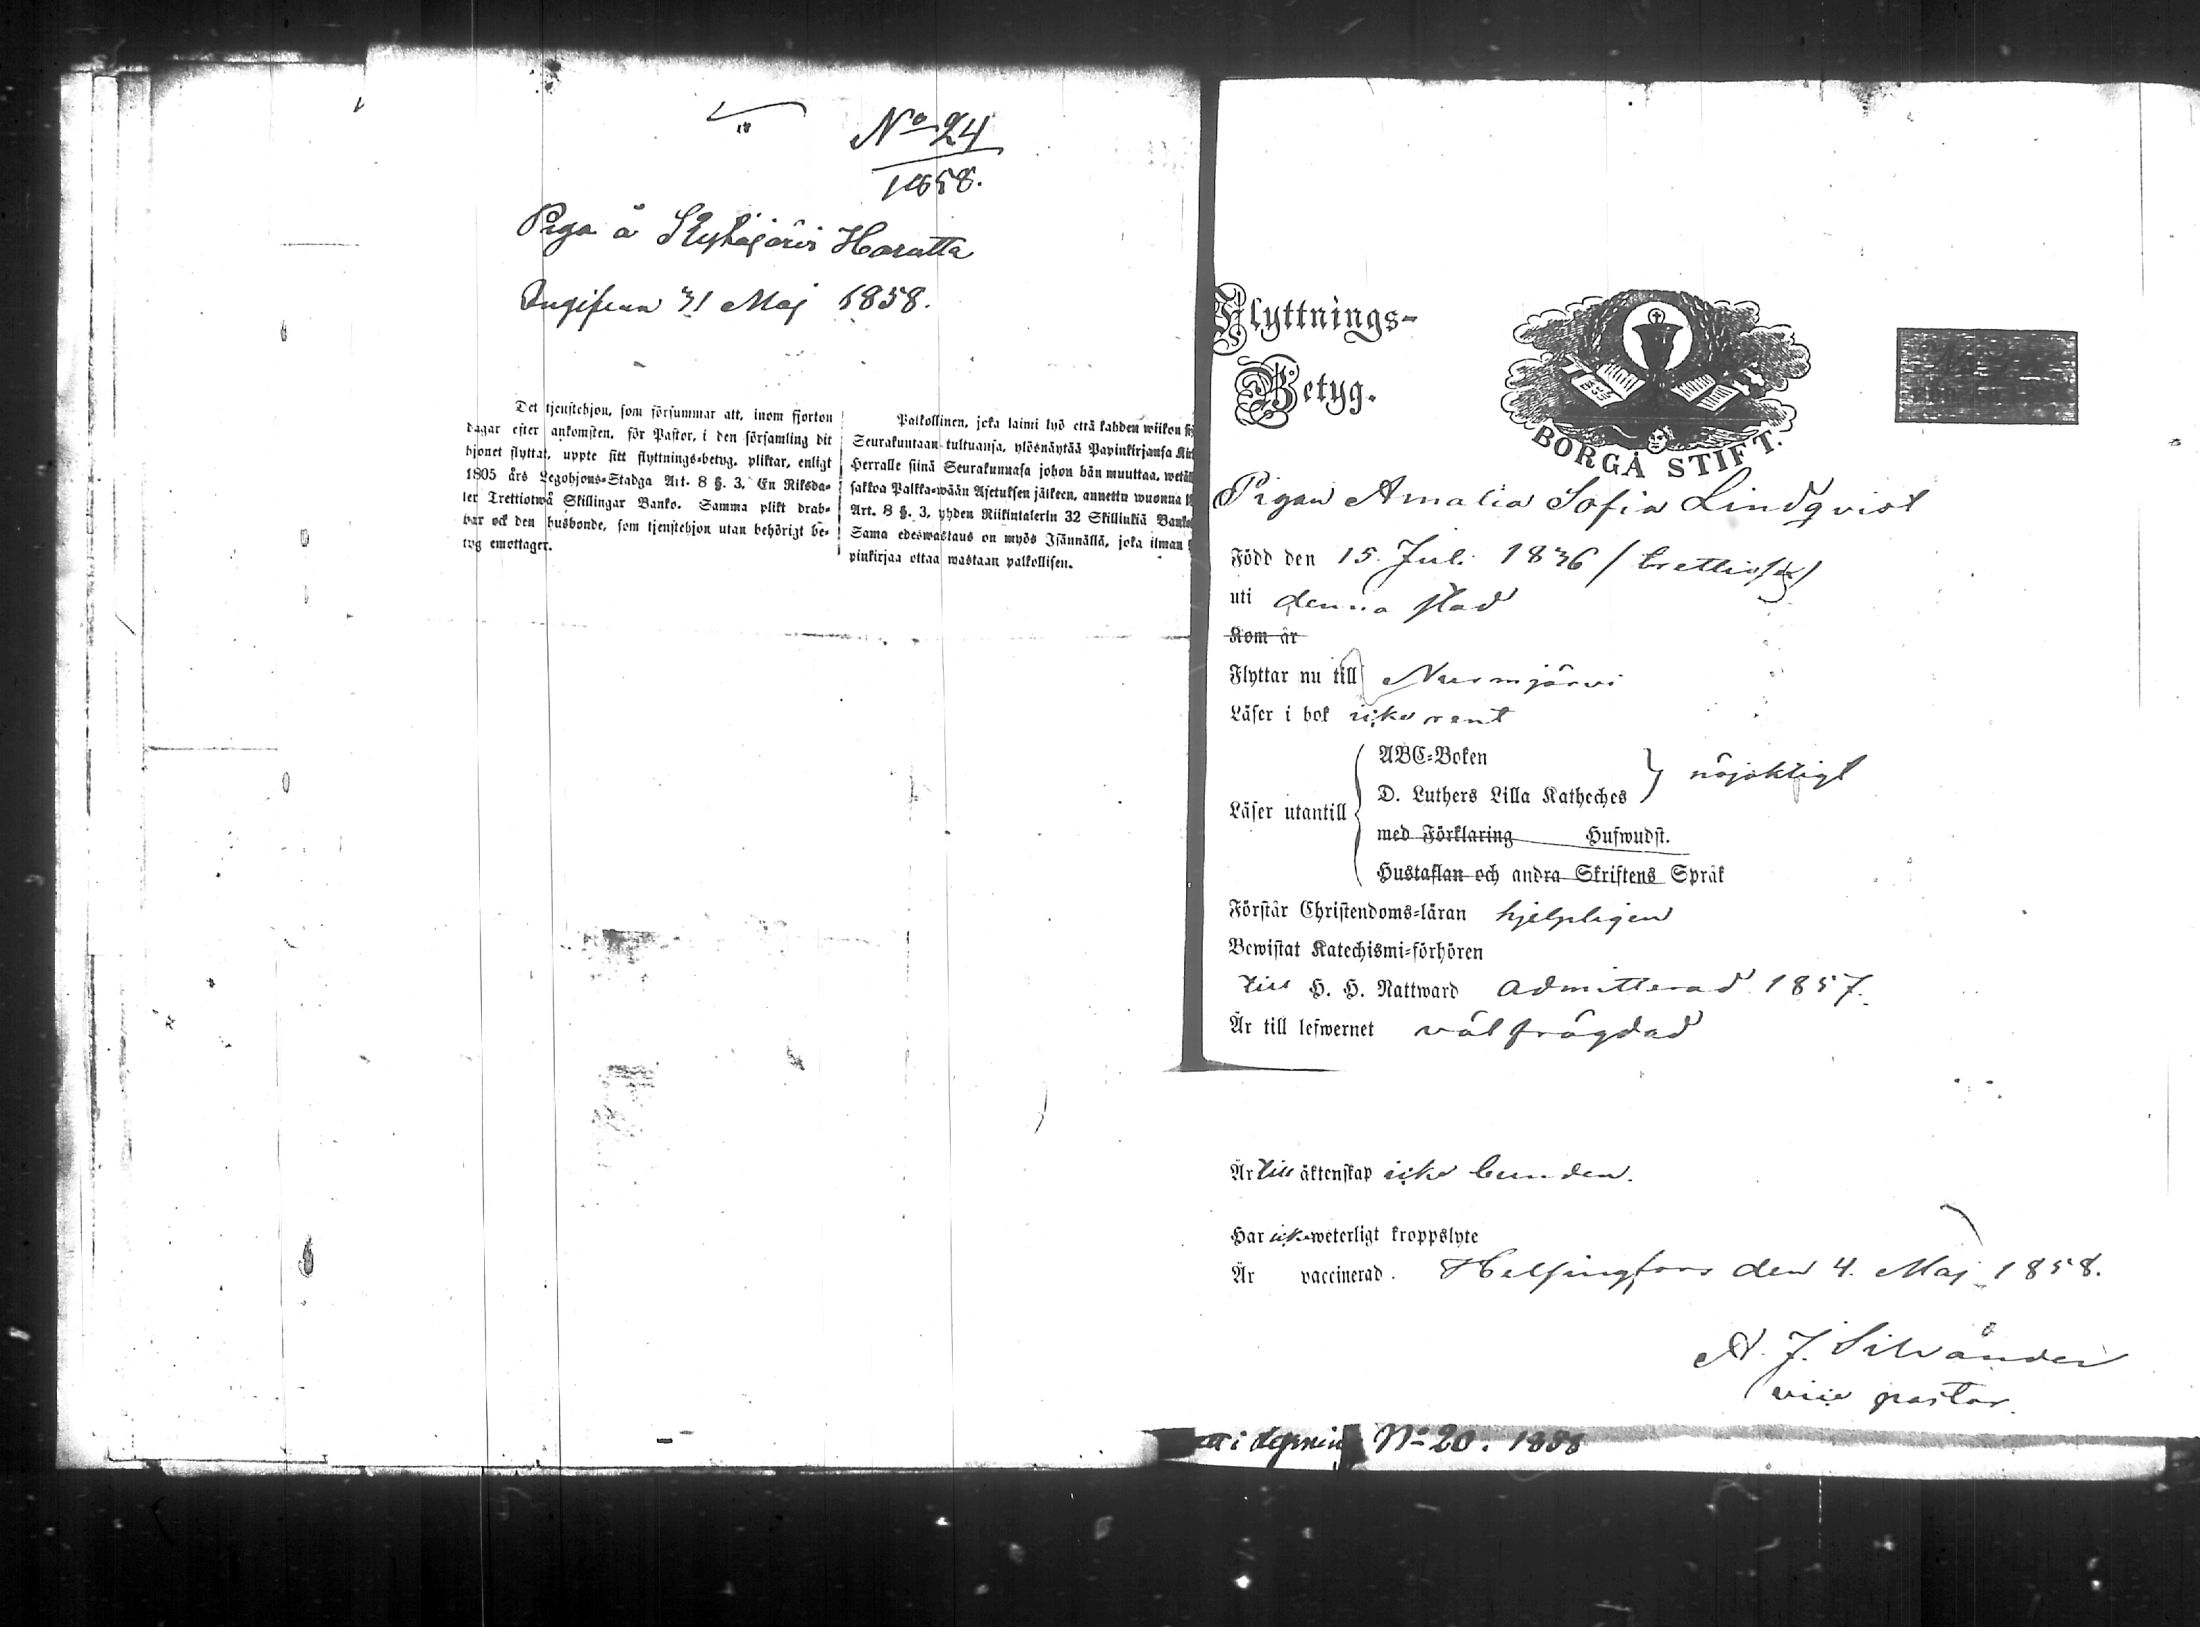 No 24
1858.
Piga å Kytäjärvi Haratta
Ingifven 31 Maj 1858.
Det tjenstehjon, som försummar att, inom fjorton
dagar efter ankomsten, för Pastor, i den församling dit
hjonet flyttat, uppte sitt flyttnings-betyg, pliktar, enligt
1805 års Legohjons-Stadga Art. 8 §. 3, En Riksda-
ler Trettiotwå Skillingar Banko. Samma plikt drab-
bar ock den husbonde, som tjenstehjon utan behörigt be-
tyg emottager.
Palkollinen, joka laimi lyö että kahden wiikon
Seurakuntaan tultuansa, ylösnäytää Papinkirjansa
Herralle siinä Seurakunnasa johon hän muuttaa,
sakkoa Palkka-wään Asetuksen jälkeen, annettu wuonna
Art. 8 §. 3, yhden Riikintalerin 32 Skillinkiä
Sama edeswastaus on myös Isännällä, joka ilman
pinkirjaa ottaa wastaan palkollisen.
Flyttnings-
Betyg.
BORGÅ STIFT.
Pigan Amalia Sofia Lindqvist
Född den 15. Juli 1836 / trettiosex /
uti denna stad
Kom år
Flyttar nu till Nurmijärvi
Läser i bok icke rent
Läser utantill
ABC-Boken
D. Luthers Lilla Katheches
nöjaktigt
med Förklaring Hufwudst.
Hustaflan och andra Skriftens Språk
Förstår Christendoms-läran hjelpligen
Bewistat Katechismi-förhören
till H. H. Nattward admitterad 1857.
Är till lefwernet välfrägdad
Är till äktenskap icke bunden.
Har icke weterligt kroppslyte
Är vaccinerad. Helsingfors den 4. Maj 1858.
A. J. Silvander
vice pastor.
No 20. 1858